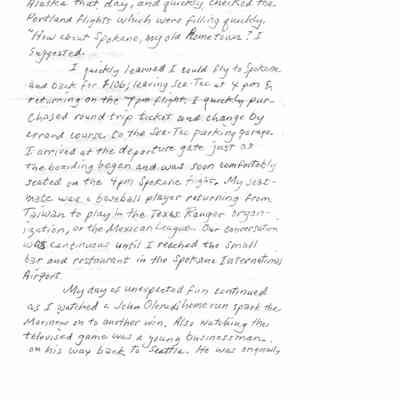 Alaska that day, and quickly checked the
Portland flights which were filling quickly.
"How about Spokane, my old Hometown? I
suggested.
I quickly learned I could fly to Spokane
and back for $106, leaving Sea-Tac at 4 pm &
returning on the 7pm flight. I quickly pur-
chased round trip ticket and change by
errand course to the Sea-Tac parking garage.
I arrived at the departure gate just as
the boarding began and was soon comfortably
seated on the 4pm Spokane flight. My seat-
mate was a baseball player returning from
Taiwan to play in the Texas Ranger organ-
ization, or the Mexican League. Our conversation
was continuous until I reached the small
bar and restaurant in the Spokane International
Airport.
My day of unexpected fun continued
as I watched a John Olerud home run spark the
Mariners on to another win. Also watching the
televised game was a young businessman
on his way back to Seattle. He was originally